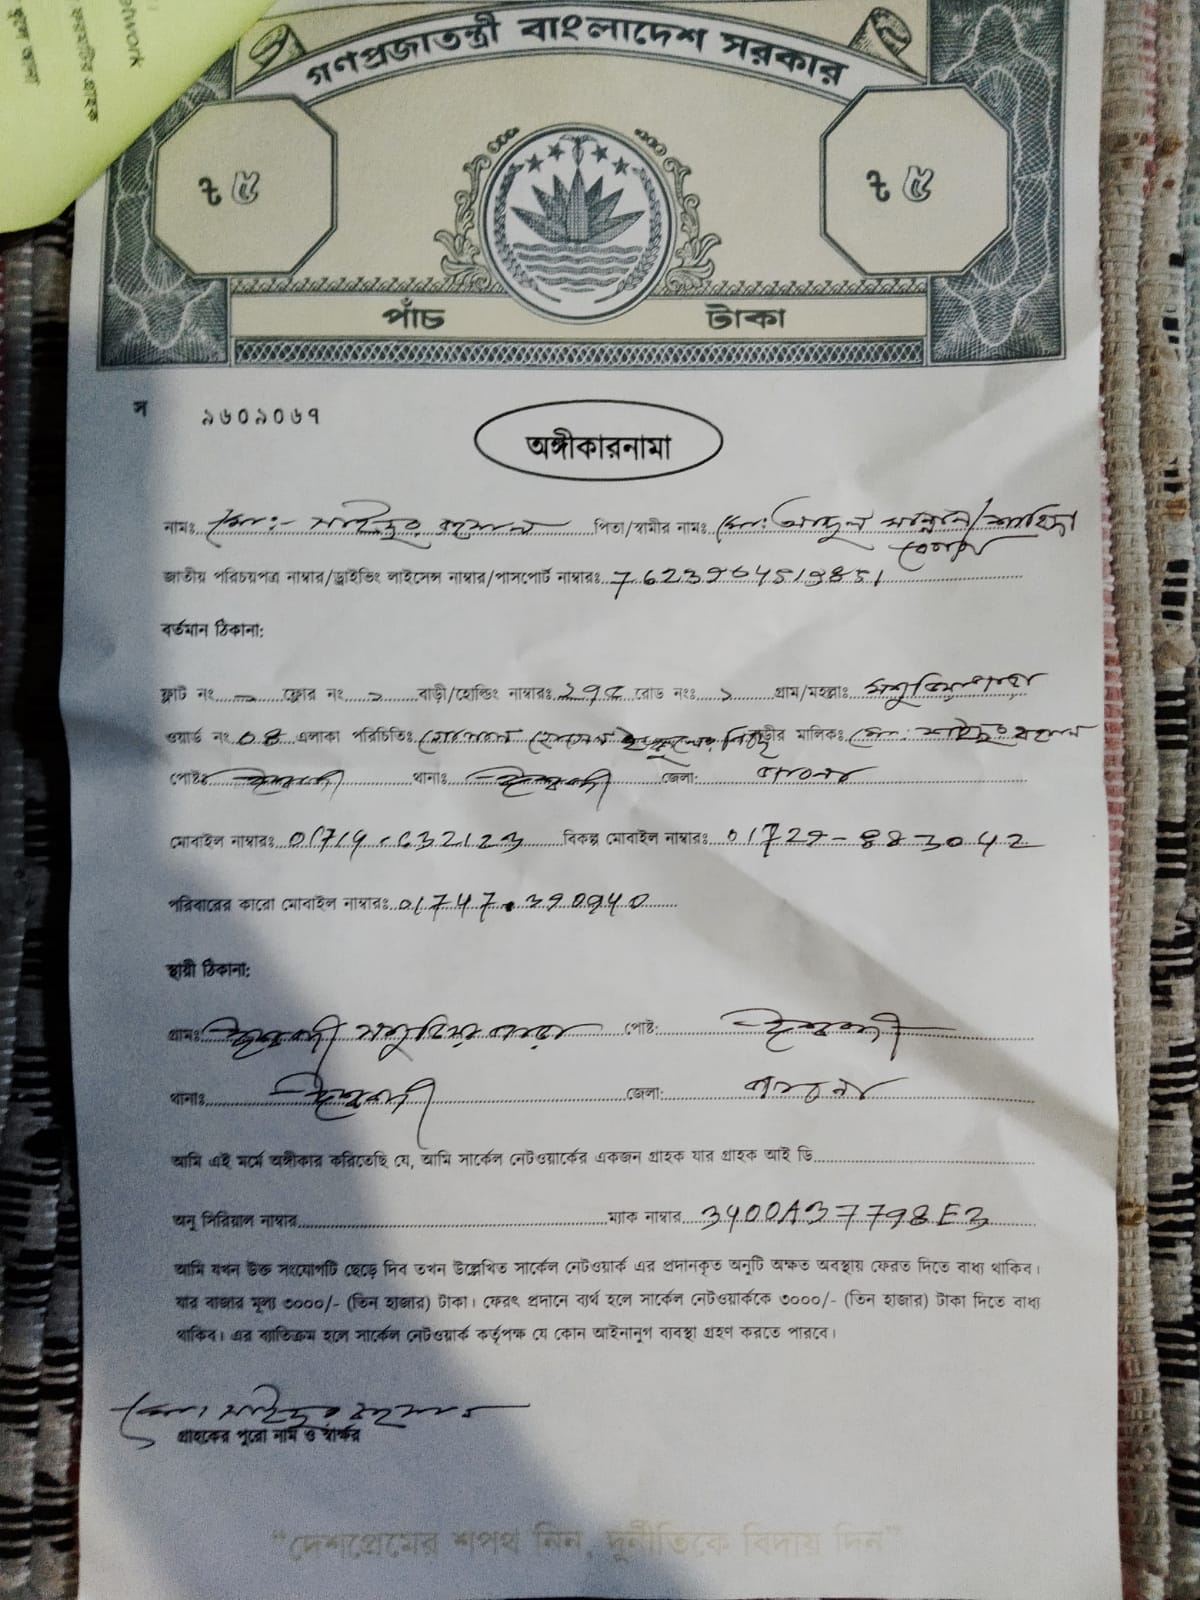 twork
ফরমটির গ্রাহক
গণপ্রজাতন্ত্রী বাংলাদেশ সরকার
৳ ৫ ৳ ৫
পাঁচ টাকা
স ৯৬০৯০৬৭
অঙ্গীকারনামা
নামঃ মো:- সাইদুর রহমান পিতা/স্বামীর নামঃ মো: আব্দুল মান্নান/শাহিদা
বেগম
জাতীয় পরিচয়পত্র নাম্বার/ড্রাইভিং লাইসেন্স নাম্বার/পাসপোর্ট নাম্বারঃ
বর্তমান ঠিকানা:
ফ্লাট নং - ফ্লোর নং বাড়ী/হোল্ডিং নাম্বারঃ রোড নংঃ গ্রাম/মহল্লাঃ
ওয়ার্ড নং এলাকা পরিচিতিঃ বাড়ীর মালিকঃ মো: সাইদুর রহমান
পোষ্টঃ ঈশ্বরদী থানাঃ ঈশ্বরদী জেলা: পাবনা
মোবাইল নাম্বারঃ 01714-632123 বিকল্প মোবাইল নাম্বারঃ
পরিবারের কারো মোবাইল নাম্বারঃ
স্থায়ী ঠিকানা:
গ্রামঃ ঈশ্বরদী পোষ্ট: ঈশ্বরদী
থানাঃ ঈশ্বরদী জেলা: পাবনা
আমি এই মর্মে অঙ্গীকার করিতেছি যে, আমি সার্কেল নেটওয়ার্কের একজন গ্রাহক যার গ্রাহক আই ডি
অনু সিরিয়াল নাম্বার ম্যাক নাম্বার 3400A37798E3
আমি যখন উক্ত সংযোগটি ছেড়ে দিব তখন উল্লেখিত সার্কেল নেটওয়ার্ক এর প্রদানকৃত অনুটি অক্ষত অবস্থায় ফেরত দিতে বাধ্য থাকিব।
যার বাজার মূল্য ৩০০০/- (তিন হাজার) টাকা। ফেরৎ প্রদানে ব্যর্থ হলে সার্কেল নেটওয়ার্ককে ৩০০০/- (তিন হাজার) টাকা দিতে বাধ্য
থাকিব। এর ব্যতিক্রম হলে সার্কেল নেটওয়ার্ক কর্তৃপক্ষ যে কোন আইনানুগ ব্যবস্থা গ্রহণ করতে পারবে।
মো: সাইদুর রহমান
গ্রাহকের পুরো নাম ও স্বাক্ষর
"দেশপ্রেমের শপথ নিন, দুর্নীতিকে বিদায় দিন"